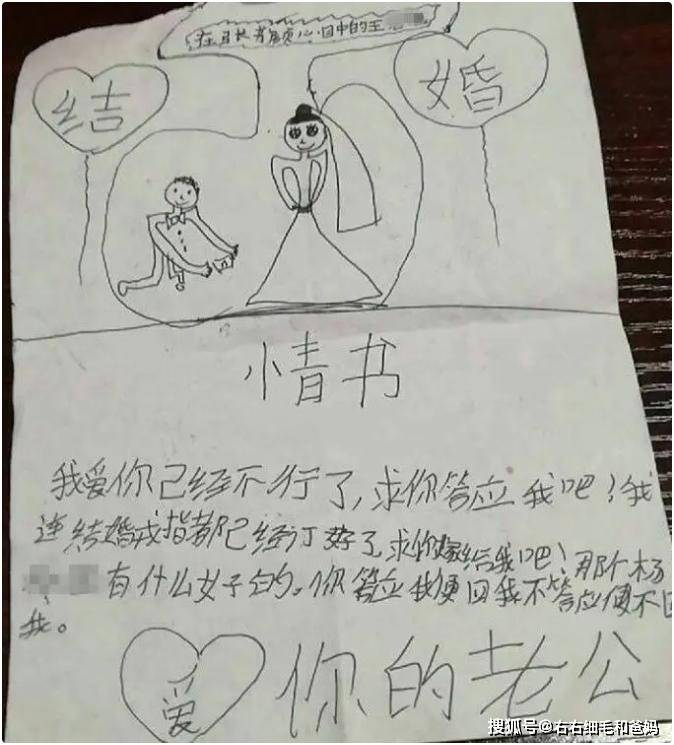 心目中的王
结 婚
情书
我爱你已经不行了,求你答应我吧!我
连结婚戒指都已经订好了求你嫁给我吧!那个杨
有什么好的。你答应我便回我不答应便不回
我。
爱 你的老公
搜狐号@右右细毛和爸妈